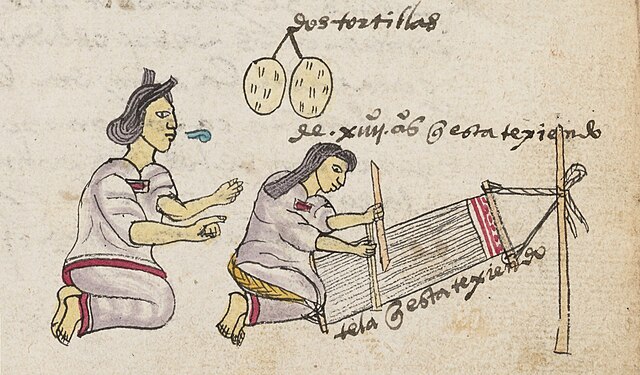 dos tortillas
de. xiiij. as q̃ esta texiendo
tela q̃ esta texiendo